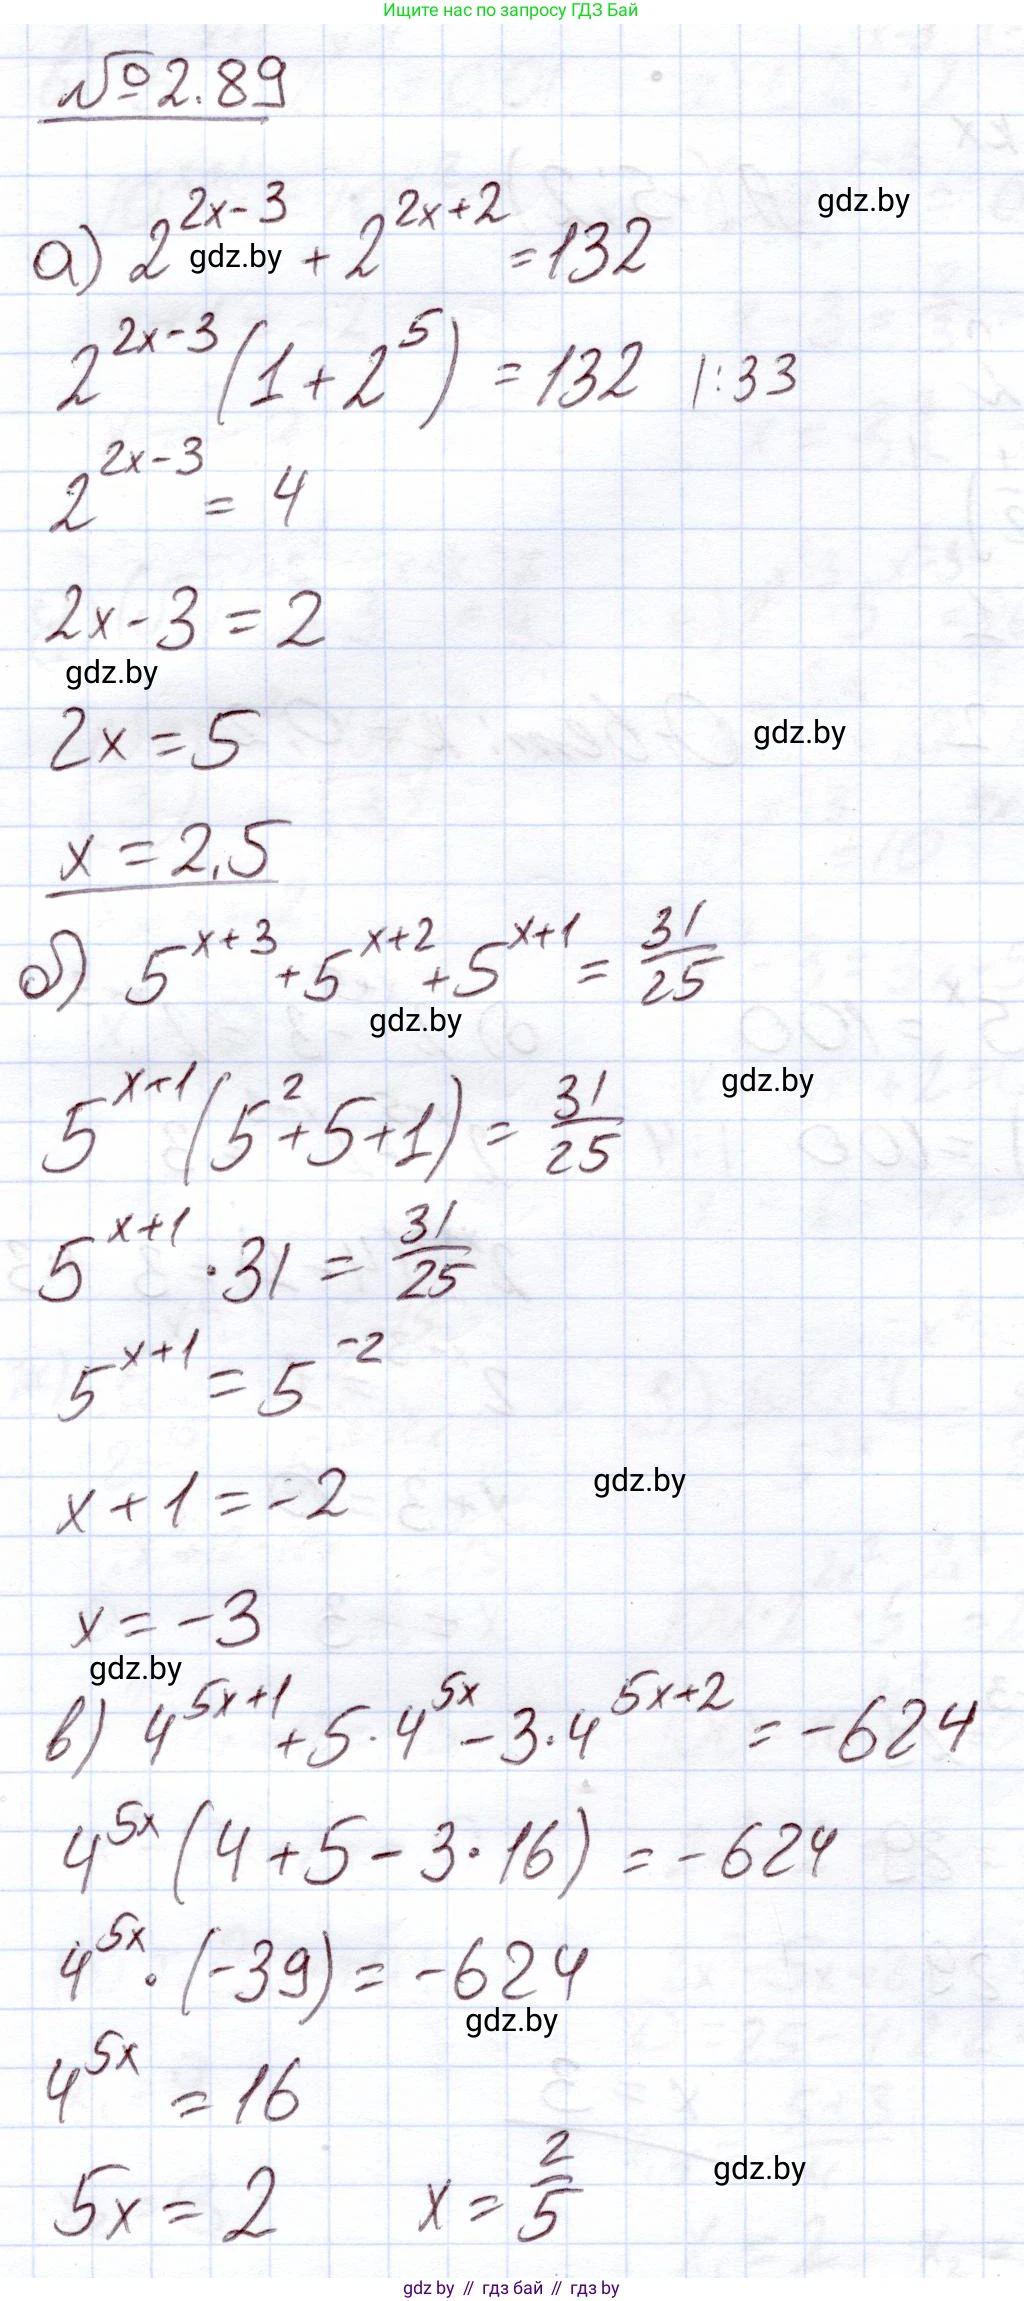 Ищите нас по запросу ГДЗ Бай
№ 2.89
gdz.by
а) 2^(2x-3) + 2^(2x+2) = 132
gdz.by
2^(2x-3) (1 + 2^5) = 132 |:33
2^(2x-3) = 4
2x - 3 = 2
gdz.by
2x = 5
gdz.by
x = 2,5
б) 5^(x+3) + 5^(x+2) + 5^(x+1) = 31/25
gdz.by
gdz.by
5^(x+1) (5^2 + 5 + 1) = 31/25
5^(x+1) · 31 = 31/25
5^(x+1) = 5^(-2)
x + 1 = -2
gdz.by
x = -3
gdz.by
в) 4^(5x+1) + 5 · 4^(5x) - 3 · 4^(5x+2) = -624
4^(5x) (4 + 5 - 3 · 16) = -624
4^(5x) · (-39) = -624
gdz.by
4^(5x) = 16
5x = 2 x = 2/5
gdz.by
gdz by // гдз бай // гдз by